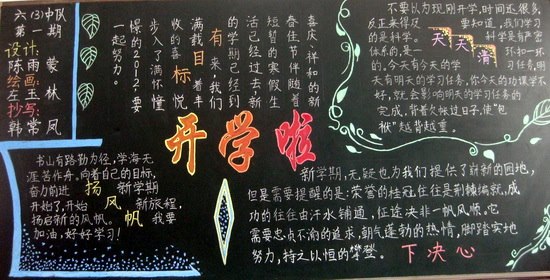 六(3)中队
第一期
设计:
陈雨蒙
绘画:
左玉林
抄写:
韩常凤
喜庆、祥和的新
春佳节伴随着
短暂的寒假生
活已经过去新
的学期已经到
有来,我们
满载目着丰
收的喜标悦
步入了满怀憧
憬的2012!要
一起努力。
不要以为现刚开学,时间还很多,
反正来得尽 要知道,我们学习
的是科学 天天清 科学是有严密
体系的,是一 环扣一环
的,今天有今天的学 习任务,明
天有明天的学习任务,你今天的功课学不
好,就会影响明天的学习任务的
完成,背着欠帐过日子,使“包
袱”越背越重。
开学啦
书山有路勤为径,学海无
涯苦作舟。向着自己的目标,
奋力前进 扬 新学期
开始了,开始 风 新旅程,
扬启新的风帆。 帆 我要
加油,好好学习!
新学期,无疑也为我们提供了崭新的园地,
但是需要提醒的是:荣誉的桂冠往往是荆棘编就,成
功的往往由汗水铺通,征途决非一帆风顺。它
需要忠贞不渝的追求,朝气蓬勃的热情,脚踏实地
努力,持之以恒的攀登。 下决心